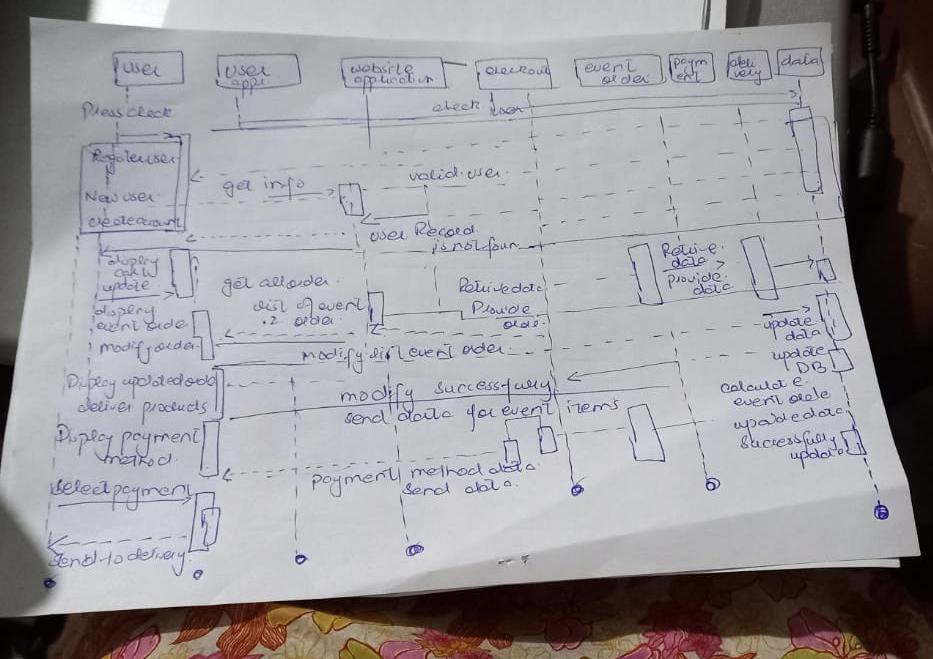 user
user
appl
website
application
checkout
event
order
paym
ent
deli
very
data
Press check
check user
Register user
get info
valid user.
New user.
create account
user Record
is not foun
display
cart
update
get all order.
Retrive data
Retrive
data
provide
data
display
event orde
list of event
.2 order.
Provide
modify order
modify list event order.
update
data
update
DB
Display updated order
deliver products
modify successfully
send data for event items
calculate
event orde
update data
Successfully
update
Display payment
method.
payment method data
send data.
select payment
send to delivery